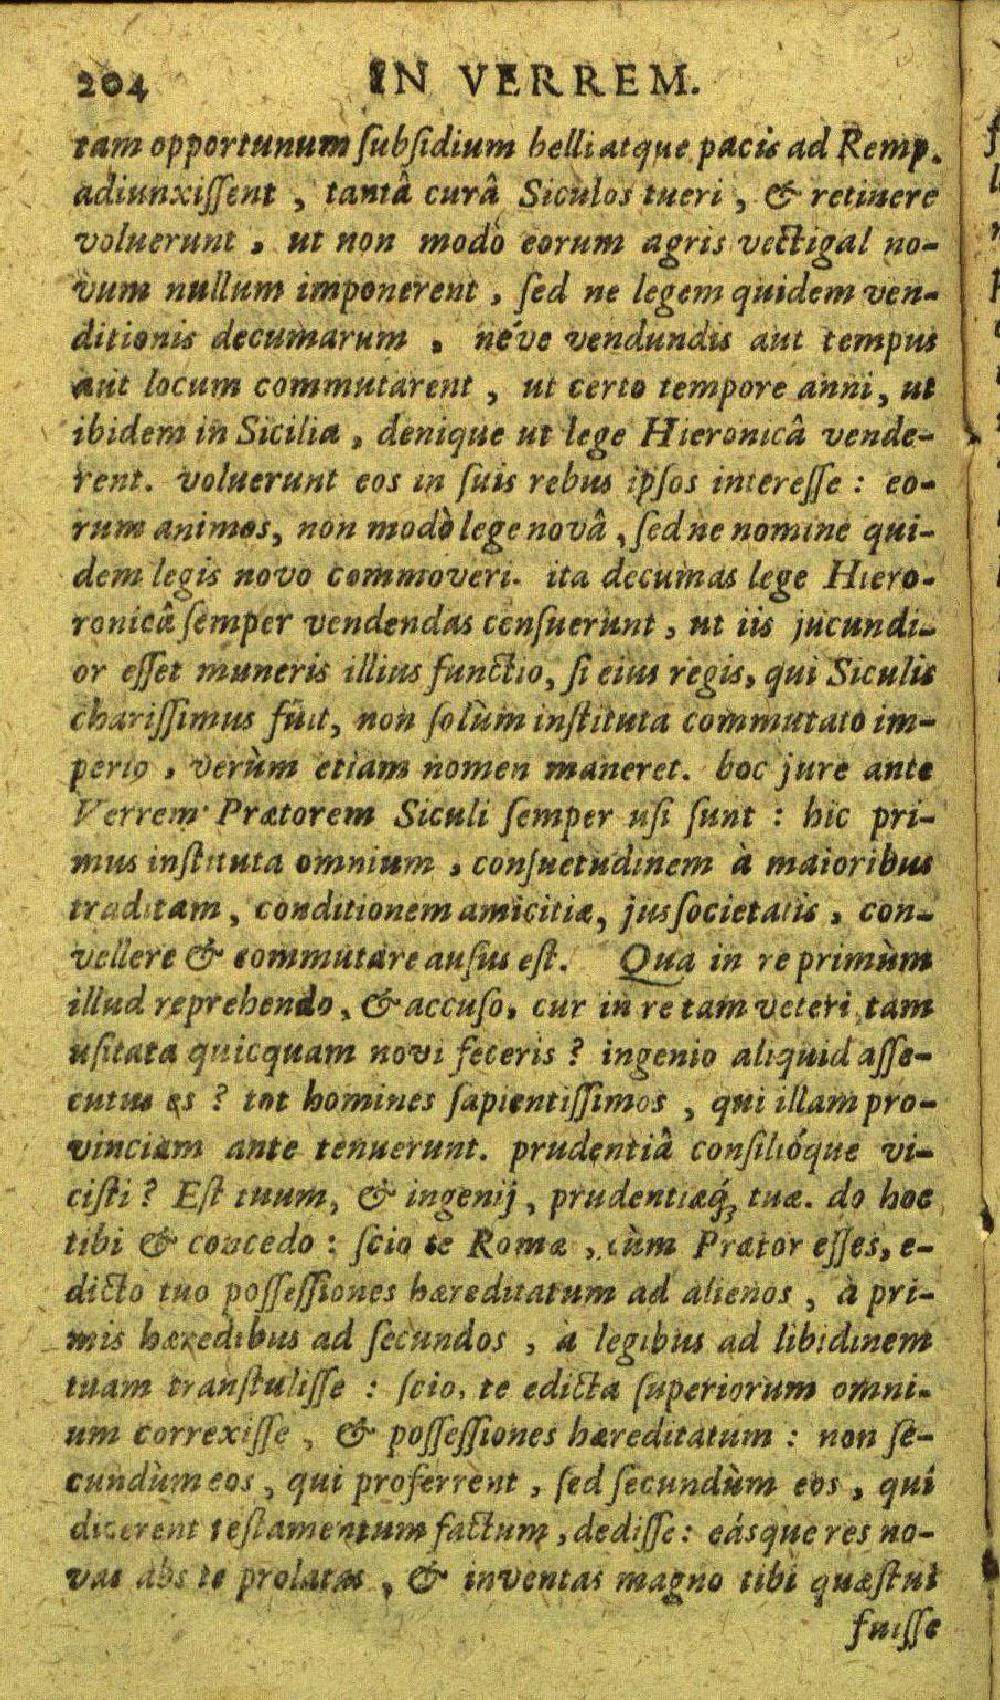 204 IN VERREM.
tam opportunum ſubſidium belli atque pacis ad Remp.
adiunxiſſent , tantâ curâ Siculos tueri , & retinere
voluerunt , ut non modò eorum agris vectigal no-
vum nullum imponerent , ſed ne legem quidem ven-
ditionis decumarum , néve vendundis aut tempus
aut locum commutarent , ut certo tempore anni, ut
ibidem in Sicilia , denique ut lege Hieronicâ vende-
rent. voluerunt eos in ſuis rebus ipſos intereſſe : eo-
rum animos, non modò lege novâ , ſed ne nomine qui-
dem legis novo commoveri. ita decumas lege Hiero-
ronicâ ſemper vendendas cenſuerunt , ut iis jucundi-
or eſſet muneris illius functio, ſi eius regis, qui Siculis
chariſſimus fuit, non ſolùm inſtituta commutato im-
perio , verùm etiam nomen maneret. hoc jure ante
Verrem Prætorem Siculi ſemper uſi ſunt : hic pri-
mus inſtituta omnium , conſuetudinem à maioribus
traditam , conditionem amicitiæ, jus ſocietatis , con-
vellere & commutare auſus eſt. Qua in re primùm
illud reprehendo , & accuſo, cur in re tam veteri, tam
uſitata quicquam novi feceris ? ingenio aliquid aſſe-
cutus es ? tot homines ſapientiſſimos , qui illam pro-
vinciam ante tenuerunt. prudentiâ conſilióque vi-
ciſti ? Eſt tuum, & ingenij , prudentiæq́ꝫ tuæ. do hoc
tibi & concedo : ſcio te Romæ , cùm Prætor eſſes, e-
dicto tuo poſſeſſiones hæreditatum ad alienos , à pri-
mis hæredibus ad ſecundos , à legibus ad libidinem
tuam tranſtuliſſe : ſcio, te edicta ſuperiorum omni-
um correxiſſe , & poſſeſſiones hæreditatum : non ſe-
cundùm eos , qui proferrent , ſed ſecundùm eos , qui
dicerent teſtamentum factum , dediſſe : eásque res no-
vas abs te prolatas , & inventas magno tibi quæſtui
fuiſſe